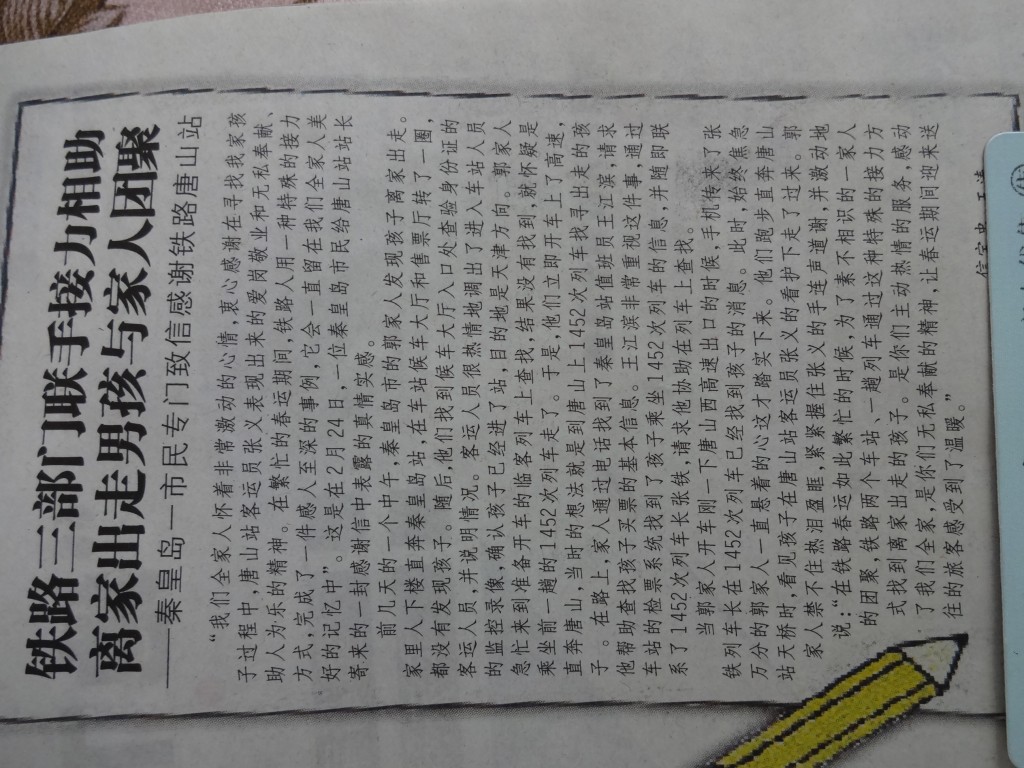 铁路三部门联手接力相助
离家出走男孩与家人团聚
——秦皇岛一市民专门致信感谢铁路唐山站
“我们全家人怀着非常激动的心情，衷心感谢在寻找我家孩
子过程中，唐山站客运员张义表现出来的爱岗敬业和无私奉献、
助人为乐的精神。在繁忙的春运期间，铁路人用一种特殊的接力
方式，完成了一件感人至深的事例，它会一直留在我们全家人美
好的记忆中”。这是在2月24日，一位秦皇岛市民给唐山站站长
寄来的一封感谢信中表露的真情实感。
前几天的一个中午，秦皇岛市的郭家人发现孩子离家出走。
家里人下楼直奔秦皇岛站，在车站候车大厅和售票厅转了一圈，
都没有发现孩子。随后，他们找到候车大厅入口处查验身份证的
客运人员，并说明情况。客运人员很热情地调出了进入车站人员
的监控录像，确认孩子已经进了站，目的地是天津方向。郭家人
急忙来到准备开车的临客列车上查找，结果没有找到，就怀疑是
乘坐前一趟的1452次列车走了。于是，他们立即开车上了高速，
直奔唐山，当时的想法就是到唐山上1452次列车找寻出走的孩
子。在路上，家人通过电话找到了秦皇岛站值班员王江滨，请求
他帮助查找孩子买票的基本信息。王江滨非常重视这件事，通过
车站的检票系统找到了孩子乘坐1452次列车的信息，并随即联
系了1452次列车长张铁，请求他协助在列车上查找。
当郭家人开车刚一下唐山西高速出口的时候，手机传来了张
铁列车长在1452次列车已经找到孩子的消息。此时，始终焦急
万分的郭家人一直悬着的心这才踏实下来。他们跑步直奔唐山
站天桥时，看见孩子在唐山站客运员张义的看护下走了过来。郭
家人禁不住热泪盈眶，紧紧握住张义的手连声道谢，并激动地
说：“在铁路春运如此繁忙的时候，为了素不相识的一家人
的团聚，铁路两个车站、一趟列车通过这种特殊的接力方
式找到离家出走的孩子。是你们主动热情的服务，感动
了我们全家，是你们无私奉献的精神，让春运期间迎来送
往的旅客感受到了温暖。”